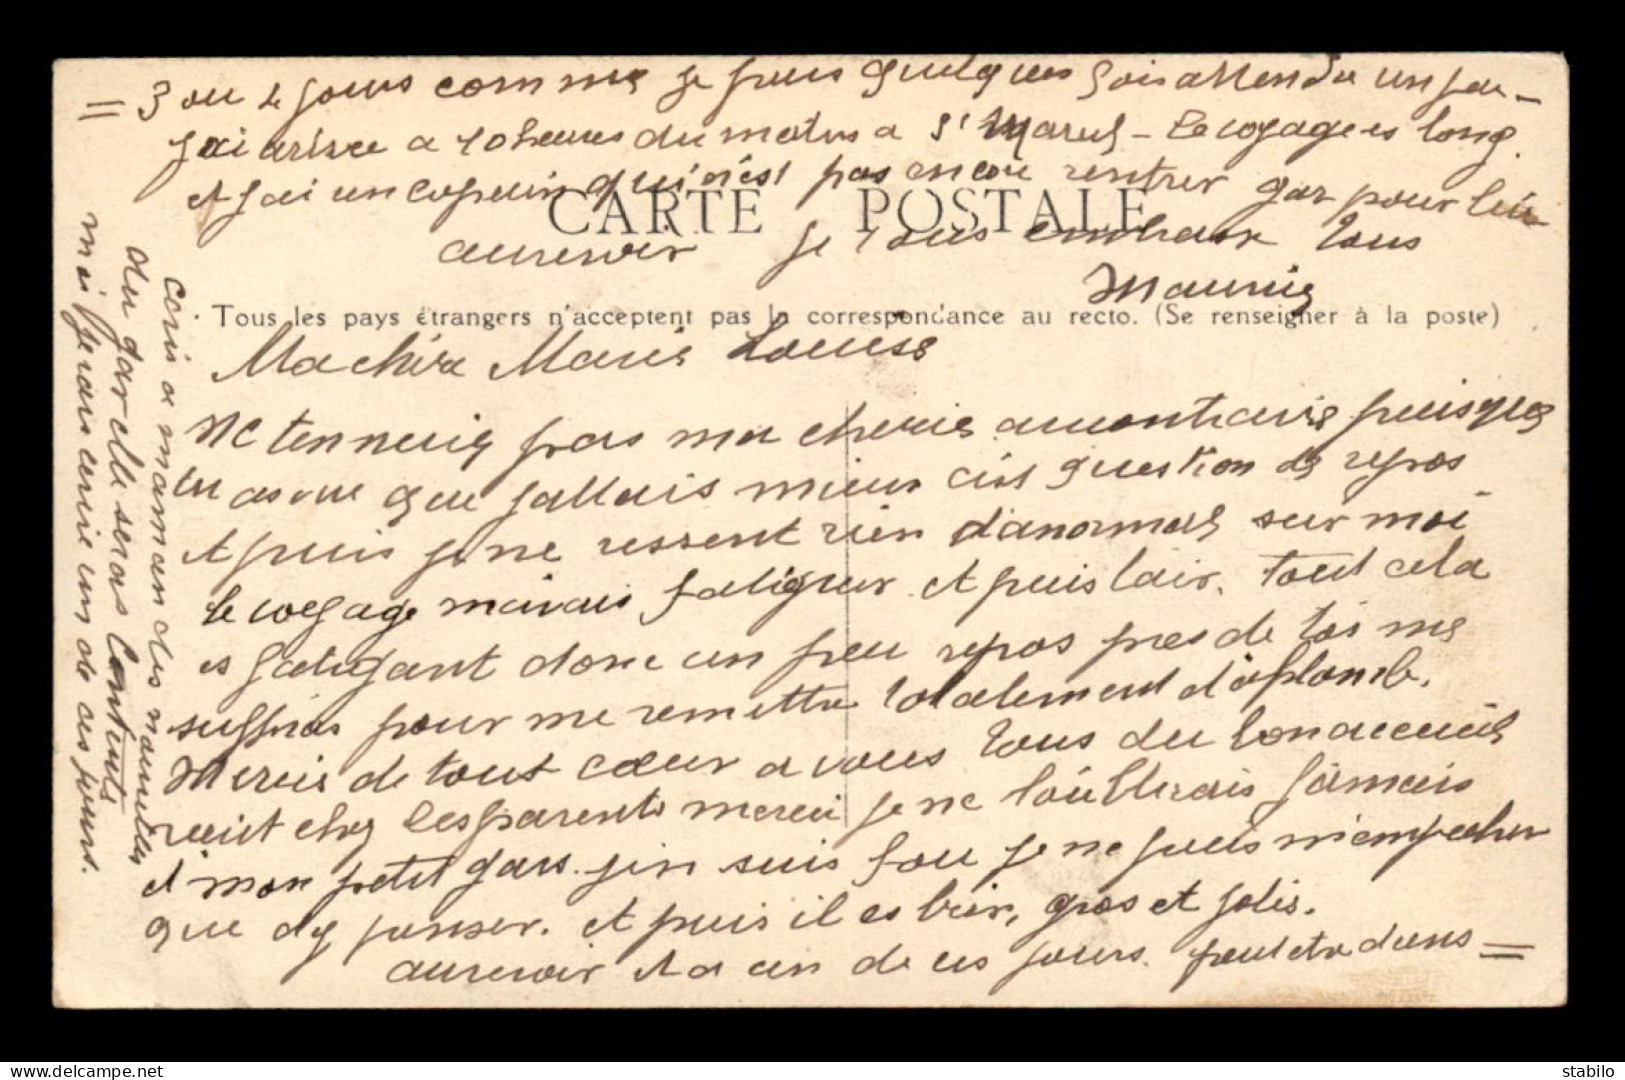 Ma chère Marie Louise
Ne tennuie pas ma cherie a montravie puisque
tu as vue que jallais mieux cist question de repos
et puis je ne ressent rien d'anormal sur moi
le voyage mavais fatiguer et puis lair. tout cela
es fatigant donc un peu repos pres de toi me
suffiras pour me remettre totalement d'aplomb.
Mercie de tout cœur a vous tous du bon accueil
recut chez les parents merci je ne l'oublierais jamais
et mon petit gars. jen suis fou je ne puis m'empecher
que dy penser. et puis il es bien, gros et jolis.
aurevoir et a un de ces jours. peut etre dans =
= 3 ou 4 jours comme je puis quelques fois attendre un peu -
Jai arivee a 10 heures du matin a St Marcel - le voyage es long.
et jai un copain qui n'est pas encore rentrer gar pour lui
aurevoir je vous embrasse tous
Maurice
ecris a maman des nouvelles
du gar elle seras contente
moi j'erais ecrire un de ces jours.
CARTE POSTALE
Tous les pays étrangers n'acceptent pas la correspondance au recto. (Se renseigner à la poste)
delcampe.net
stabilo